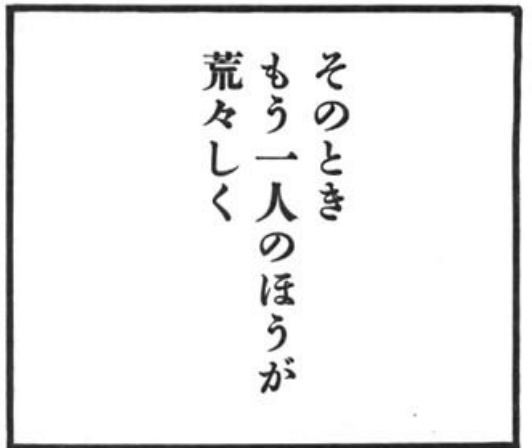 そのとき
もう一人のほうが
荒々しく